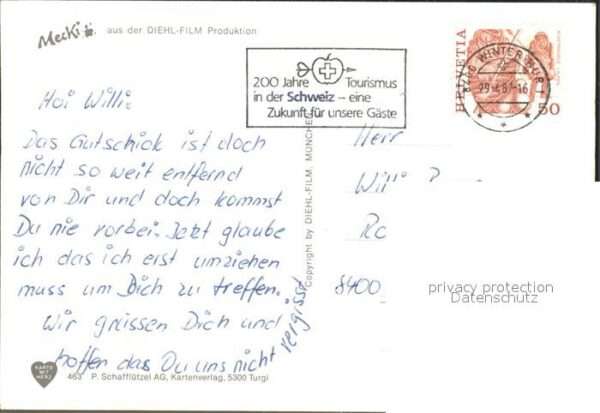 Mecki
aus der DIEHL-FILM Produktion
HELVETIA
50
8400 WINTERTHUR
29.4.8 -16
200 Jahre Tourismus
in der Schweiz – eine
Zukunft für unsere Gäste
Hoi Willi
Das Gutschick ist doch
nicht so weit entfernd
von Dir und doch kommst
Du nie vorbei. Jetzt glaube
ich das ich erst umziehen
muss um Dich zu treffen.
Wir grüssen Dich und
hoffen das Du uns nicht
vergisst
Copyright by DIEHL-FILM, MÜNCHEN
Herr
Willi
8400
privacy protection
Datenschutz
KARTE MIT HERZ
463 P. Schafflützel AG, Kartenverlag, 5300 Turgi